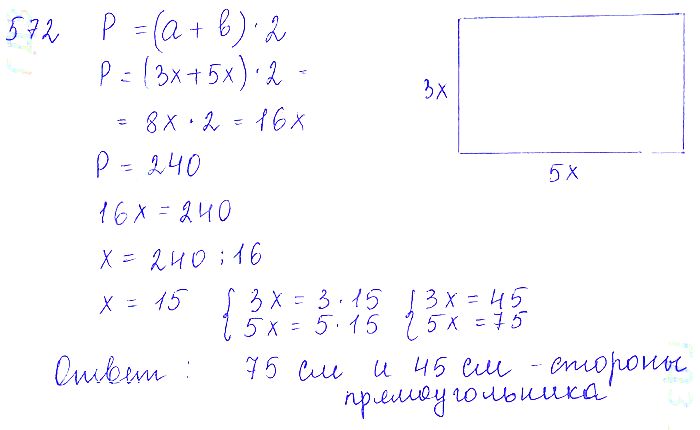 572 P = (a + b) · 2
P = (3x + 5x) · 2 =
= 8x · 2 = 16x
P = 240
16x = 240
x = 240 : 16
x = 15 { 3x = 3 · 15 { 3x = 45
{ 5x = 5 · 15 { 5x = 75
Ответ : 75 см и 45 см - стороны
прямоугольника
3x
5x